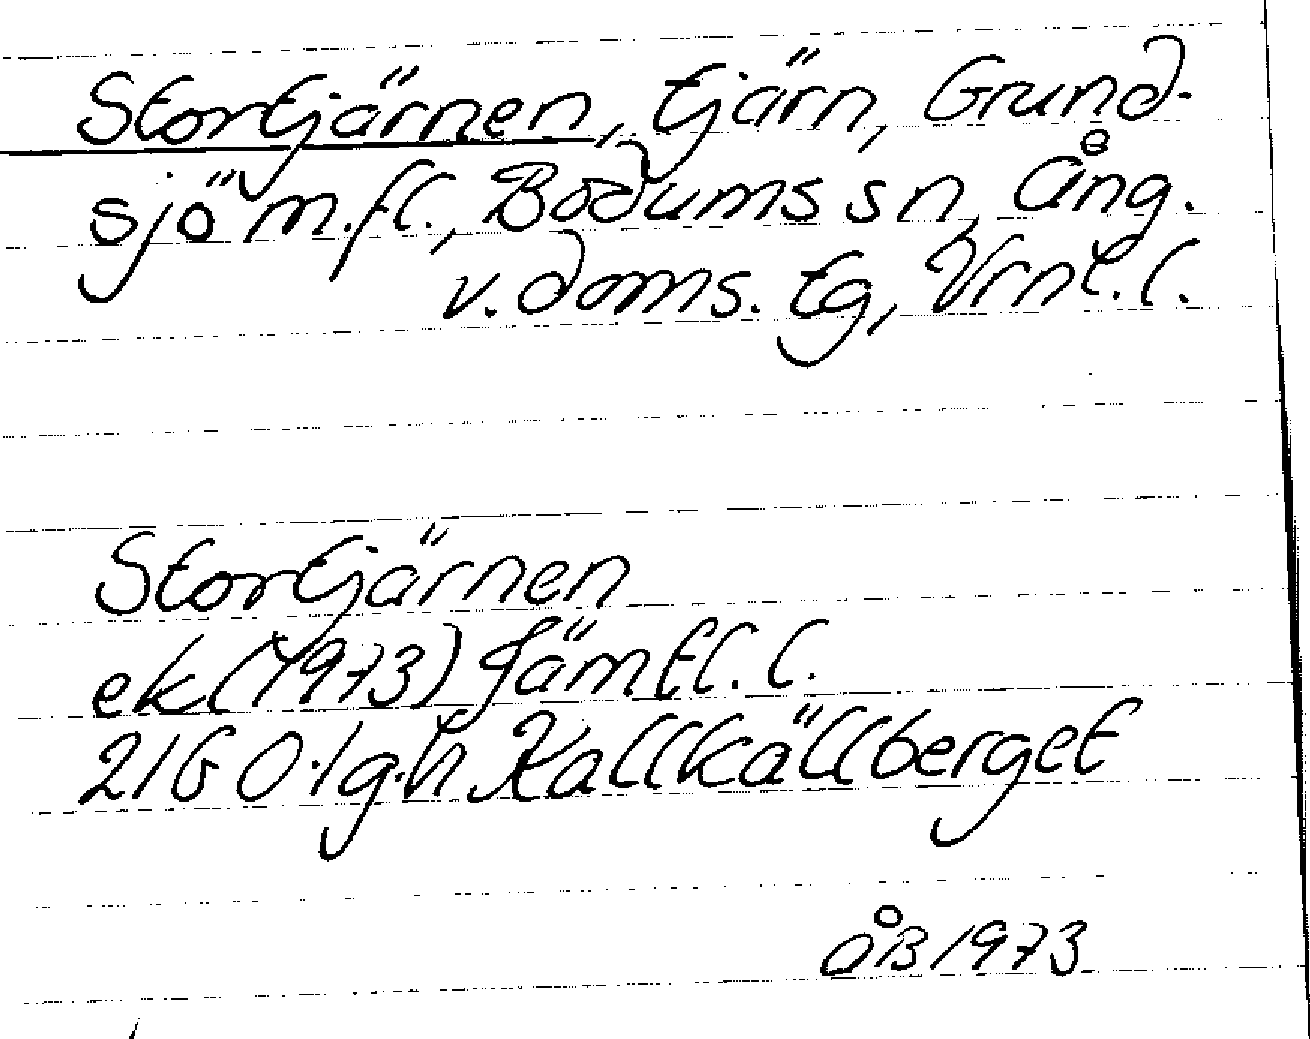 Stortjärnen, tjärn, Grund-
sjö m.fl., Bodums sn, Ång.
v. doms. tg, Vrnl. l.
Stortjärnen
ek (1973) Jämtl. l.
21G 0·1g·h Kallkällberget
ÅB 1973